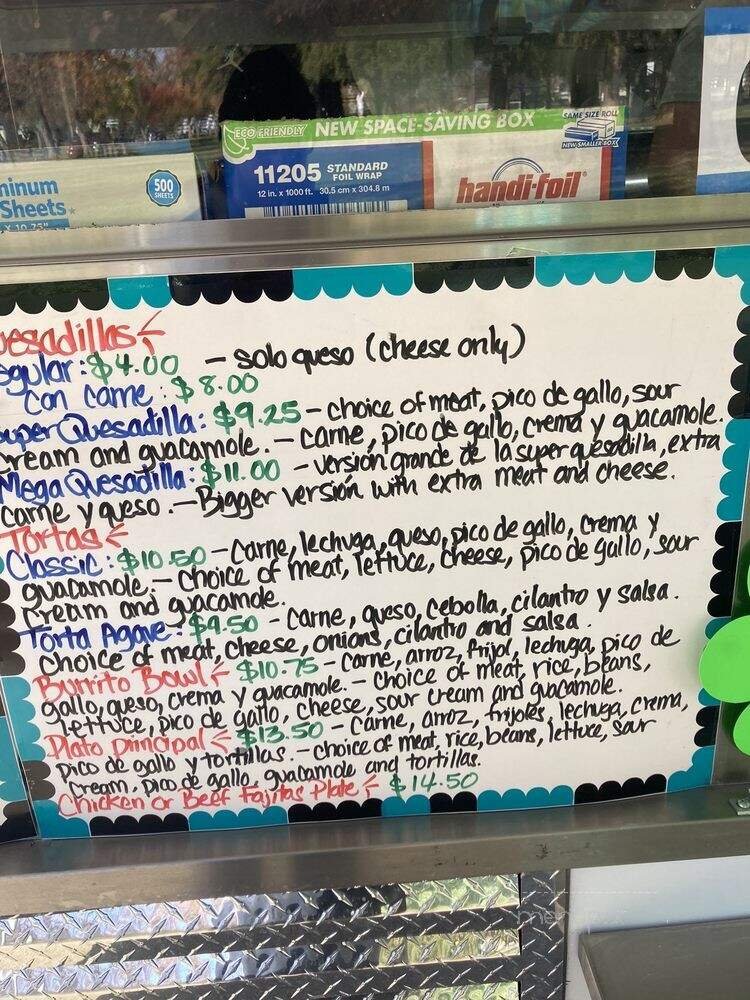 ECO FRIENDLY NEW SPACE-SAVING BOX
SAME SIZE ROLL
NEW SMALLER BOX
11205 STANDARD FOIL WRAP
12 in. x 1000 ft. 30.5 cm x 304.8 m
handi-foil
minum
Sheets
500 SHEETS
uesadillas
egular: $4.00 - solo queso (cheese only)
con carne: $8.00
Super Quesadilla: $9.25 - choice of meat, pico de gallo, sour
cream and guacamole. - carne, pico de gallo, crema y guacamole.
Mega Quesadilla: $11.00 - versión grande de la super quesadilla, extra
carne y queso. - Bigger versión with extra meat and cheese.
Tortas
Classic: $10.50 - Carne, lechuga, queso, pico de gallo, crema y
guacamole. - choice of meat, lettuce, cheese, pico de gallo, sour
cream and guacamole.
Torta Agave: $9.50 - carne, queso, cebolla, cilantro y salsa.
Choice of meat, cheese, onions, cilantro and salsa.
Burrito Bowl $10.75 - carne, arroz, frijol, lechuga, pico de
gallo, queso, crema y guacamole. - choice of meat, rice, beans,
lettuce, pico de gallo, cheese, sour cream and guacamole.
Plato principal $13.50 - Carne, arroz, frijoles, lechuga, crema,
pico de gallo y tortillas. - choice of meat, rice, beans, lettuce, sour
cream, pico de gallo, guacamole and tortillas.
Chicken or Beef Fajitas Plate $14.50